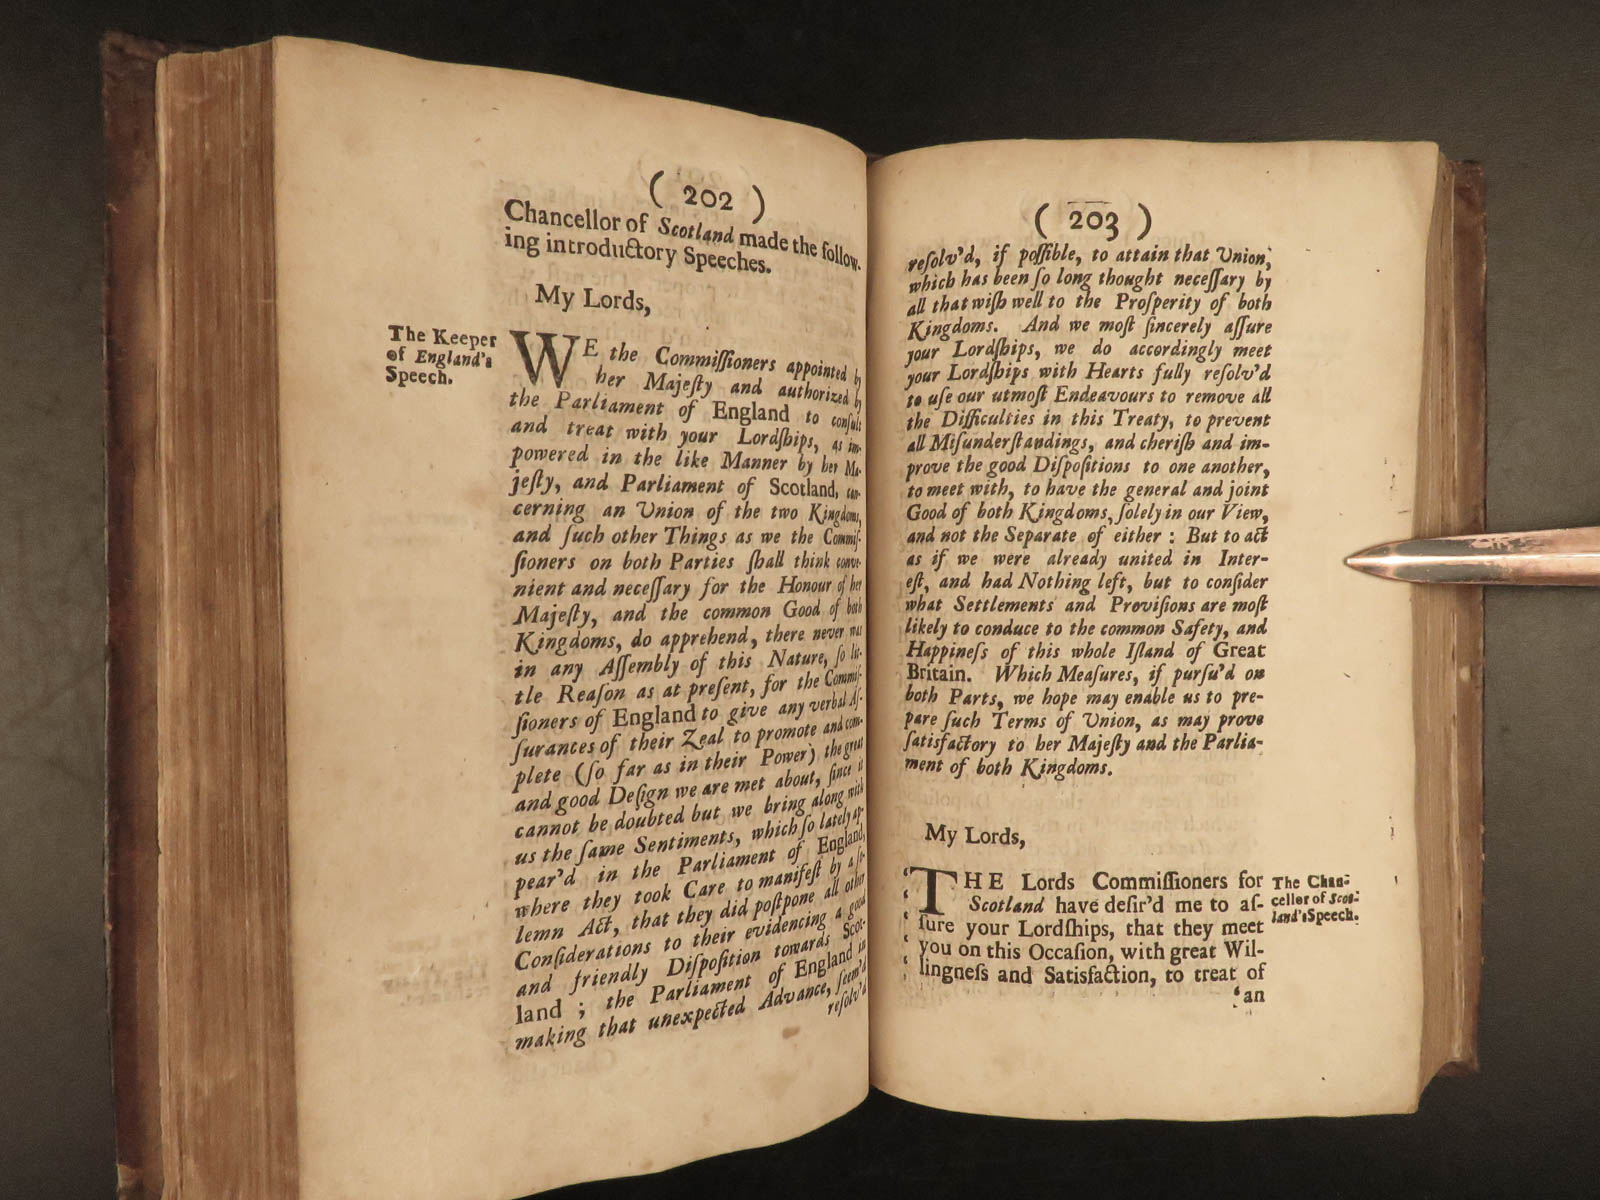 ( 202 )
Chancellor of Scotland made the follow-
ing introductory Speeches.
My Lords,
The Keeper
of England's
Speech.
WE the Commiſſioners appointed by
her Majeſty and authorized by
the Parliament of England to conſult
and treat with your Lordſhips, as im-
powered in the like Manner by her Ma-
jeſty, and Parliament of Scotland, con-
cerning an Union of the two Kingdoms,
and ſuch other Things as we the Commiſ-
ſioners on both Parties ſhall think conve-
nient and neceſſary for the Honour of her
Majeſty, and the common Good of both
Kingdoms, do apprehend, there never was
in any Aſſembly of this Nature, ſo lit-
tle Reaſon as at preſent, for the Commiſ-
ſioners of England to give any verbal Aſ-
ſurances of their Zeal to promote and com-
plete (ſo far as in their Power) the great
and good Deſign we are met about, ſince it
cannot be doubted but we bring along with
us the ſame Sentiments, which ſo lately ap-
pear'd in the Parliament of England,
where they took Care to manifeſt by a ſo-
lemn Act, that they did poſtpone all other
Conſiderations to their evidencing a good
and friendly Diſpoſition towards Scot-
land ; the Parliament of England in
making that unexpected Advance, ſeem'd
reſolv'd
( 203 )
reſolv'd, if poſſible, to attain that Union,
which has been ſo long thought neceſſary by
all that wiſh well to the Proſperity of both
Kingdoms. And we moſt ſincerely aſſure
your Lordſhips, we do accordingly meet
your Lordſhips with Hearts fully reſolv'd
to uſe our utmoſt Endeavours to remove all
the Difficulties in this Treaty, to prevent
all Miſunderſtandings, and cheriſh and im-
prove the good Diſpoſitions to one another,
to meet with, to have the general and joint
Good of both Kingdoms, ſolely in our View,
and not the Separate of either : But to act
as if we were already united in Inter-
eſt, and had Nothing left, but to conſider
what Settlements and Proviſions are moſt
likely to conduce to the common Safety, and
Happineſs of this whole Iſland of Great
Britain. Which Meaſures, if purſu'd on
both Parts, we hope may enable us to pre-
pare ſuch Terms of Union, as may prove
ſatisfactory to her Majeſty and the Parlia-
ment of both Kingdoms.
My Lords,
‘THE Lords Commiſſioners for
‘ Scotland have deſir'd me to aſ-
‘ ſure your Lordſhips, that they meet
‘ you on this Occaſion, with great Wil-
‘ lingneſs and Satisfaction, to treat of
‘an
The Chan-
cellor of Scot-
land's Speech.